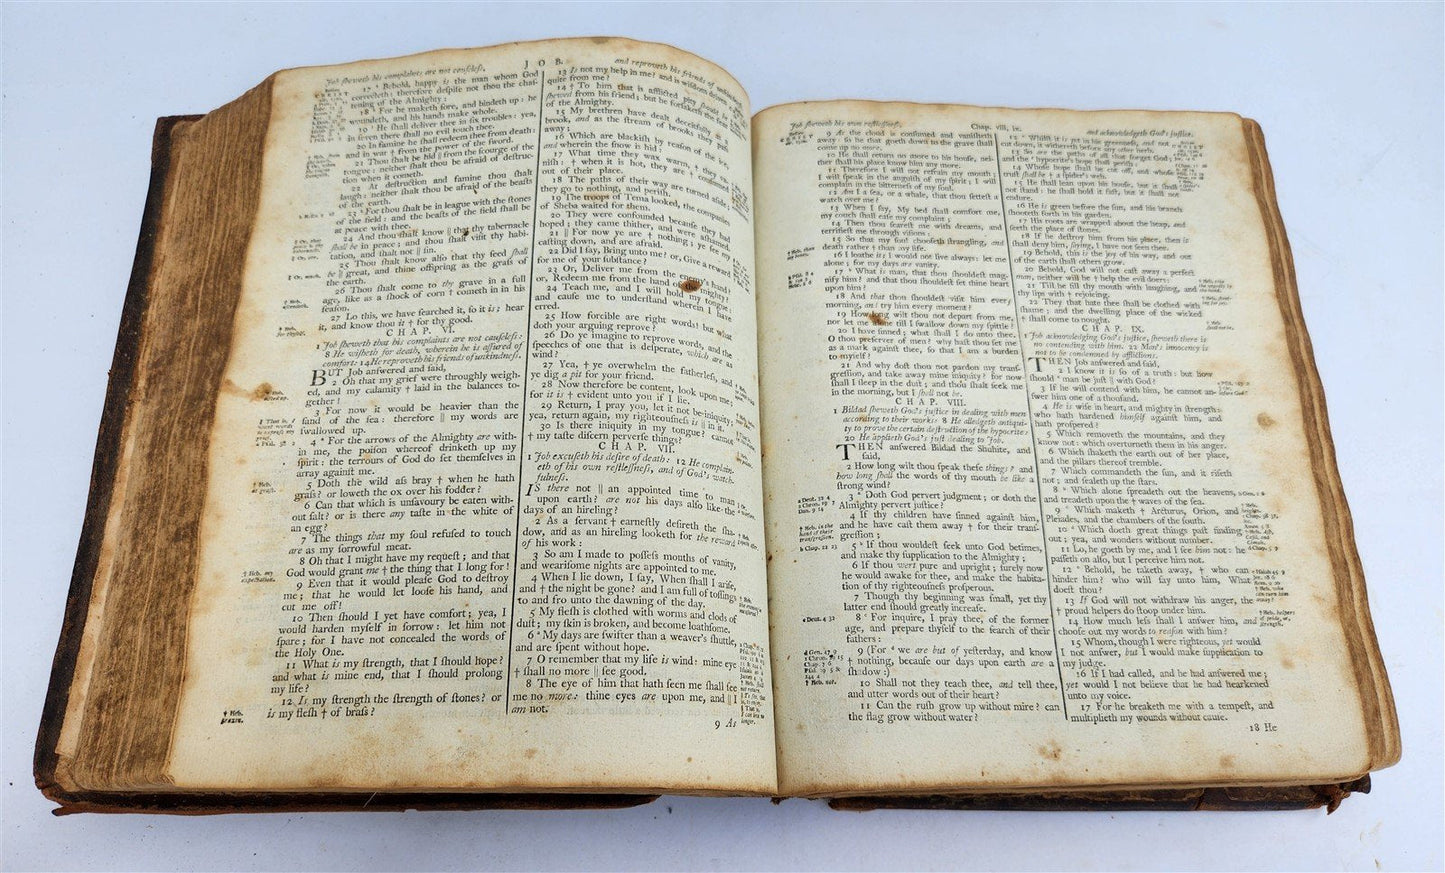 Job ſheweth his complaints are not cauſeleſs.
JOB.
and reproveth his friends of unkindneſs.
17 * Behold, happy is the man whom God
correcteth: therefore deſpiſe not thou the chaſ-
tening of the Almighty:
18 For he maketh ſore, and bindeth up: he
woundeth, and his hands make whole.
19 * He ſhall deliver thee in ſix troubles: yea,
in ſeven there ſhall no evil touch thee.
20 In famine he ſhall redeem thee from death:
and in war † from the power of the ſword.
21 Thou ſhalt be hid || from the ſcourge of the
tongue: neither ſhalt thou be afraid of deſtruc-
tion when it cometh.
22 At deſtruction and famine thou ſhalt
laugh: neither ſhalt thou be afraid of the beaſts
of the earth.
23 * For thou ſhalt be in league with the ſtones
of the field: and the beaſts of the field ſhall be
at peace with thee.
24 And thou ſhalt know || that thy tabernacle
ſhall be in peace; and thou ſhalt viſit thy habi-
tation, and ſhalt not || ſin.
25 Thou ſhalt know alſo that thy ſeed ſhall
be || great, and thine offspring as the graſs of
the earth.
26 Thou ſhalt come to thy grave in a full
age, like as a ſhock of corn † cometh in in his
ſeaſon.
27 Lo this, we have ſearched it, ſo it is; hear
it, and know thou it † for thy good.
CHAP. VI.
1 Job ſheweth that his complaints are not cauſeleſs:
8 He wiſheth for death, wherein he is aſſured of
comfort: 14 He reproveth his friends of unkindneſs.
BUT Job anſwered and ſaid,
2 Oh that my grief were throughly weigh-
ed, and my calamity † laid in the balances to-
gether!
3 For now it would be heavier than the
ſand of the ſea: therefore || my words are
ſwallowed up.
4 * For the arrows of the Almighty are with-
in me, the poiſon whereof drinketh up my
ſpirit: the terrours of God do ſet themſelves in
array againſt me.
5 Doth the wild aſs bray † when he hath
graſs? or loweth the ox over his fodder?
6 Can that which is unſavoury be eaten with-
out ſalt? or is there any taſte in the white of
an egg?
7 The things that my ſoul refuſed to touch
are as my ſorrowful meat.
8 Oh that I might have my requeſt; and that
God would grant me † the thing that I long for!
9 Even that it would pleaſe God to deſtroy
me; that he would let looſe his hand, and
cut me off!
10 Then ſhould I yet have comfort; yea, I
would harden myſelf in ſorrow: let him not
ſpare; for I have not concealed the words of
the Holy One.
11 What is my ſtrength, that I ſhould hope?
and what is mine end, that I ſhould prolong
my life?
12 Is my ſtrength the ſtrength of ſtones? or
is my fleſh † of braſs?
13 Is not my help in me? and is wiſdom driven
quite from me?
14 † To him that is afflicted pity ſhould be
ſhewed from his friend; but he forſaketh the fear
of the Almighty.
15 My brethren have dealt deceitfully as a
brook, and as the ſtream of brooks they paſs
away;
16 Which are blackiſh by reaſon of the ice,
and wherein the ſnow is hid:
17 What time they wax warm, † they va-
niſh: † when it is hot, they are † conſumed
out of their place.
18 The paths of their way are turned aſide;
they go to nothing, and periſh.
19 The troops of Tema looked, the companies
of Sheba waited for them.
20 They were confounded becauſe they had
hoped; they came thither, and were aſhamed.
21 || For now ye are † nothing; ye ſee my
caſting down, and are afraid.
22 Did I ſay, Bring unto me? or, Give a reward
for me of your ſubſtance?
23 Or, Deliver me from the enemy's hand?
or, Redeem me from the hand of the mighty?
24 Teach me, and I will hold my tongue;
and cauſe me to underſtand wherein I have
erred.
25 How forcible are right words! but what
doth your arguing reprove?
26 Do ye imagine to reprove words, and the
ſpeeches of one that is deſperate, which are as
wind?
27 Yea, † ye overwhelm the fatherleſs, and
ye dig a pit for your friend.
28 Now therefore be content, look upon me,
for it is † evident unto you if I lie.
29 Return, I pray you, let it not be iniquity;
yea, return again, my righteouſneſs is || in it.
30 Is there iniquity in my tongue? cannot
† my taſte diſcern perverſe things?
CHAP. VII.
1 Job excuſeth his deſire of death: 12 He complain-
eth of his own reſtleſſneſs, and of God's watch-
fulneſs.
IS there not || an appointed time to man
upon earth? are not his days alſo like the
days of an hireling?
2 As a ſervant † earneſtly deſireth the ſha-
dow, and as an hireling looketh for the reward
of his work:
3 So am I made to poſſeſs months of vanity,
and weariſome nights are appointed to me.
4 When I lie down, I ſay, When ſhall I ariſe,
and † the night be gone? and I am full of toſſings
to and fro unto the dawning of the day.
5 My fleſh is clothed with worms and clods of
duſt; my ſkin is broken, and become loathſome.
6 * My days are ſwifter than a weaver's ſhuttle,
and are ſpent without hope.
7 O remember that my life is wind: mine eye
† ſhall no more || ſee good.
8 The eye of him that hath ſeen me ſhall ſee
me no more: thine eyes are upon me, and || I
am not.
9 As
Job ſheweth his own reſtleſſneſs,
Chap. viii, ix.
and acknowledgeth God's juſtice.
9 As the cloud is conſumed and vaniſheth
away: ſo he that goeth down to the grave ſhall
come up no more.
10 He ſhall return no more to his houſe, nei-
ther ſhall his place know him any more.
11 Therefore I will not refrain my mouth;
I will ſpeak in the anguiſh of my ſpirit; I will
complain in the bitterneſs of my ſoul.
12 Am I a ſea, or a whale, that thou ſetteſt a
watch over me?
13 When I ſay, My bed ſhall comfort me,
my couch ſhall eaſe my complaint;
14 Then thou ſcareſt me with dreams, and
terrifieſt me through viſions:
15 So that my ſoul chooſeth ſtrangling, and
death rather † than my life.
16 I loathe it; I would not live always: let me
alone; for my days are vanity.
17 * What is man, that thou ſhouldeſt mag-
nify him? and that thou ſhouldeſt ſet thine heart
upon him?
18 And that thou ſhouldeſt viſit him every
morning, and try him every moment?
19 How long wilt thou not depart from me,
nor let me till I ſwallow down my ſpittle?
20 I have ſinned; what ſhall I do unto thee,
O thou preſerver of men? why haſt thou ſet me
as a mark againſt thee, ſo that I am a burden
to myſelf?
21 And why doſt thou not pardon my tranſ-
greſſion, and take away mine iniquity? for now
ſhall I ſleep in the duſt; and thou ſhalt ſeek me
in the morning, but I ſhall not be.
CHAP. VIII.
1 Bildad ſheweth God's juſtice in dealing with men
according to their works: 8 He alledgeth antiqui-
ty to prove the certain deſtruction of the hypocrite:
20 He applieth God's juſt dealing to Job.
THEN anſwered Bildad the Shuhite, and
ſaid,
2 How long wilt thou ſpeak theſe things? and
how long ſhall the words of thy mouth be like a
ſtrong wind?
3 * Doth God pervert judgment; or doth the
Almighty pervert juſtice?
4 If thy children have ſinned againſt him,
and he have caſt them away † for their tranſ-
greſſion;
5 * If thou wouldeſt ſeek unto God betimes,
and make thy ſupplication to the Almighty;
6 If thou wert pure and upright; ſurely now
he would awake for thee, and make the habita-
tion of thy righteouſneſs proſperous.
7 Though thy beginning was ſmall, yet thy
latter end ſhould greatly increaſe.
8 * For inquire, I pray thee, of the former
age, and prepare thyſelf to the ſearch of their
fathers:
9 (For * we are but of yeſterday, and know
† nothing, becauſe our days upon earth are a
ſhadow:)
10 Shall not they teach thee, and tell thee,
and utter words out of their heart?
11 Can the ruſh grow up without mire? can
the flag grow without water?
12 * Whilſt it is yet in his greenneſs, and not
cut down, it withereth before any other herb.
13 So are the paths of all that forget God;
and the * hypocrite's hope ſhall periſh:
14 Whoſe hope ſhall be cut off, and whoſe
truſt ſhall be † a ſpider's web.
15 He ſhall lean upon his houſe, but it ſhall
not ſtand: he ſhall hold it faſt, but it ſhall not
endure.
16 He is green before the ſun, and his branch
ſhooteth forth in his garden.
17 His roots are wrapped about the heap, and
ſeeth the place of ſtones.
18 If he deſtroy him from his place, then it
ſhall deny him, ſaying, I have not ſeen thee.
19 Behold, this is the joy of his way, and out
of the earth ſhall others grow.
20 Behold, God will not caſt away a perfect
man, neither will he † help the evil doers:
21 Till he fill thy mouth with laughing, and
thy lips with † rejoicing.
22 They that hate thee ſhall be clothed with
ſhame; and the dwelling place of the wicked
† ſhall come to nought.
CHAP. IX.
1 Job acknowledging God's juſtice, ſheweth there is
no contending with him. 22 Man's innocency is
not to be condemned by afflictions.
THEN Job anſwered and ſaid,
2 I know it is ſo of a truth: but how
ſhould * man be juſt || with God?
3 If he will contend with him, he cannot an-
ſwer him one of a thouſand.
4 He is wiſe in heart, and mighty in ſtrength:
who hath hardened himſelf againſt him, and
hath proſpered?
5 Which removeth the mountains, and they
know not: which overturneth them in his anger.
6 Which ſhaketh the earth out of her place,
and the pillars thereof tremble.
7 Which commandeth the ſun, and it riſeth
not; and ſealeth up the ſtars.
8 * Which alone ſpreadeth out the heavens,
and treadeth upon the † waves of the ſea.
9 * Which maketh † Arcturus, Orion, and
Pleiades, and the chambers of the ſouth.
10 * Which doeth great things paſt finding
out; yea, and wonders without number.
11 Lo, he goeth by me, and I ſee him not: he
paſſeth on alſo, but I perceive him not.
12 * Behold, he taketh away, † who can
hinder him? who will ſay unto him, What
doeſt thou?
13 If God will not withdraw his anger, the
† proud helpers do ſtoop under him.
14 How much leſs ſhall I anſwer him, and
chooſe out my words to reaſon with him?
15 Whom, though I were righteous, yet would
I not anſwer, but I would make ſupplication to
my judge.
16 If I had called, and he had anſwered me;
yet would I not believe that he had hearkened
unto my voice.
17 For he breaketh me with a tempeſt, and
multiplieth my wounds without cauſe.
18 He